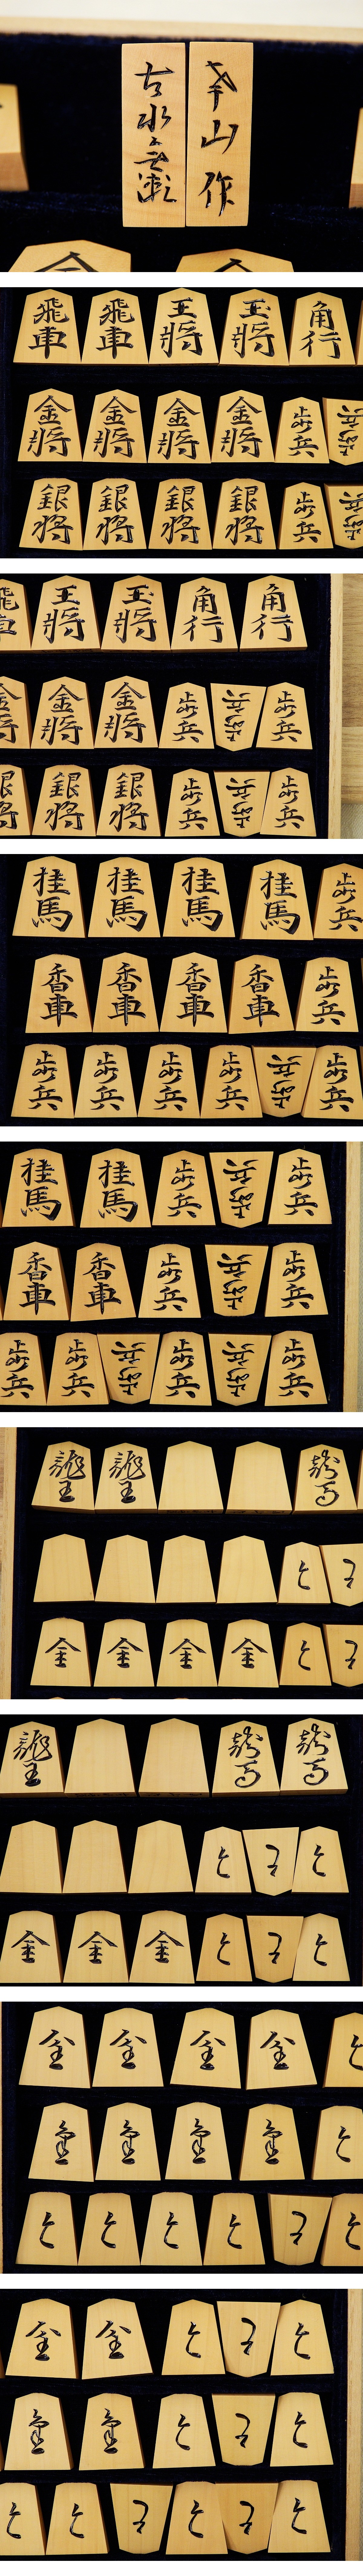 山作
古水無瀬
飛車 飛車 王將 玉將 角行
金將 金將 金將 金將 歩兵 歩兵
銀將 銀將 銀將 銀將 歩兵 歩兵
飛車 王將 玉將 角行 角行
金將 金將 金將 歩兵 歩兵 歩兵
銀將 銀將 銀將 歩兵 歩兵 歩兵
桂馬 桂馬 桂馬 桂馬 歩兵
香車 香車 香車 香車 歩兵
歩兵 歩兵 歩兵 歩兵 歩兵 歩兵
桂馬 桂馬 歩兵 歩兵 歩兵
香車 香車 歩兵 歩兵 歩兵
歩兵 歩兵 歩兵 歩兵 歩兵 歩兵
龍王 龍王 龍馬
と と
金 金 金 金 と と
龍王 龍馬 龍馬
と と と
金 金 金 と と と
金 金 金 金 と
金 金 金 金 と
と と と と と と
金 金 と と と
金 金 と と と
と と と と と と